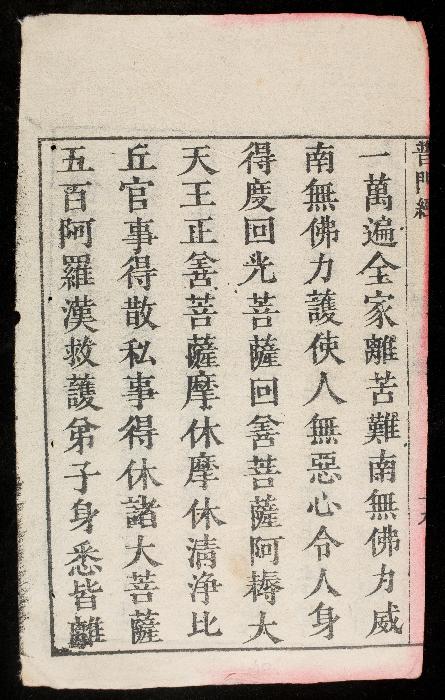 普門經
一萬遍全家離苦難南無佛力威
南無佛力護使人無惡心令人身
得度回光菩薩回善菩薩阿耨大
天王正善菩薩摩休摩休清淨比
丘官事得散私事得休諸大菩薩
五百阿羅漢救護弟子身悉皆離